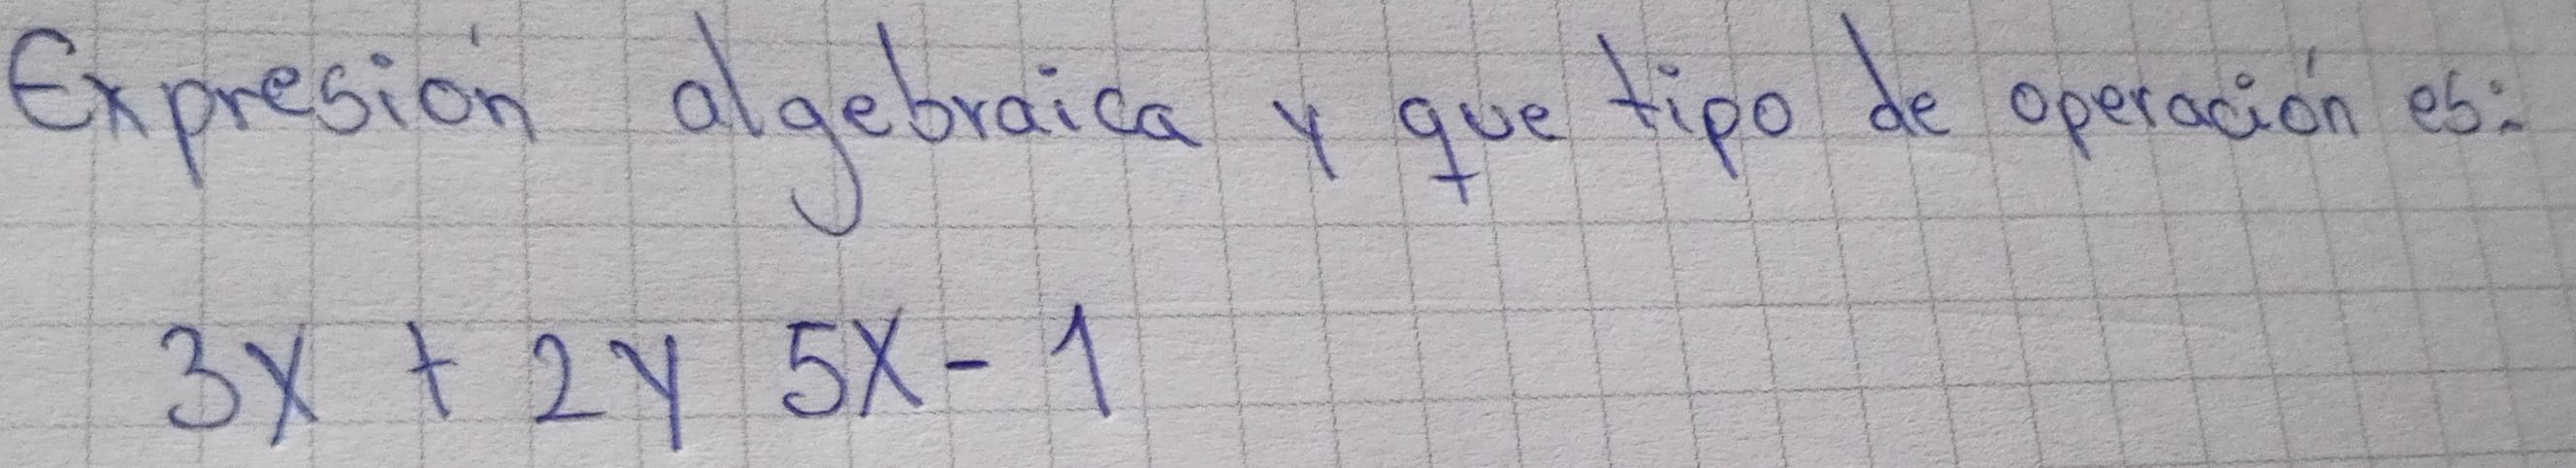 Expresión algebraica y que tipo de operación es:
3x + 2y 5x - 1